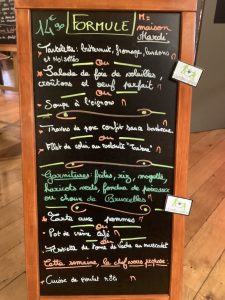 14€90 FORMULE M = maison
Mardi
- Tartelette: butternut, fromage, lardons et noisettes
Ou
- Salade de foie de volailles, croûtons et oeuf parfait
Ou
- Soupe à l'oignons M
- Travers de porc confit sauce barbecue
Ou
- Filet de colin au velouté
Garnitures: frites, riz, nougets, haricots verts, fondue de poireaux ou choux de Bruxelles
- Tarte aux pommes M
Ou
- Pot de crème café M
Ou
Cette semaine, le chef vous propose
- Cuisse de poulet rôti